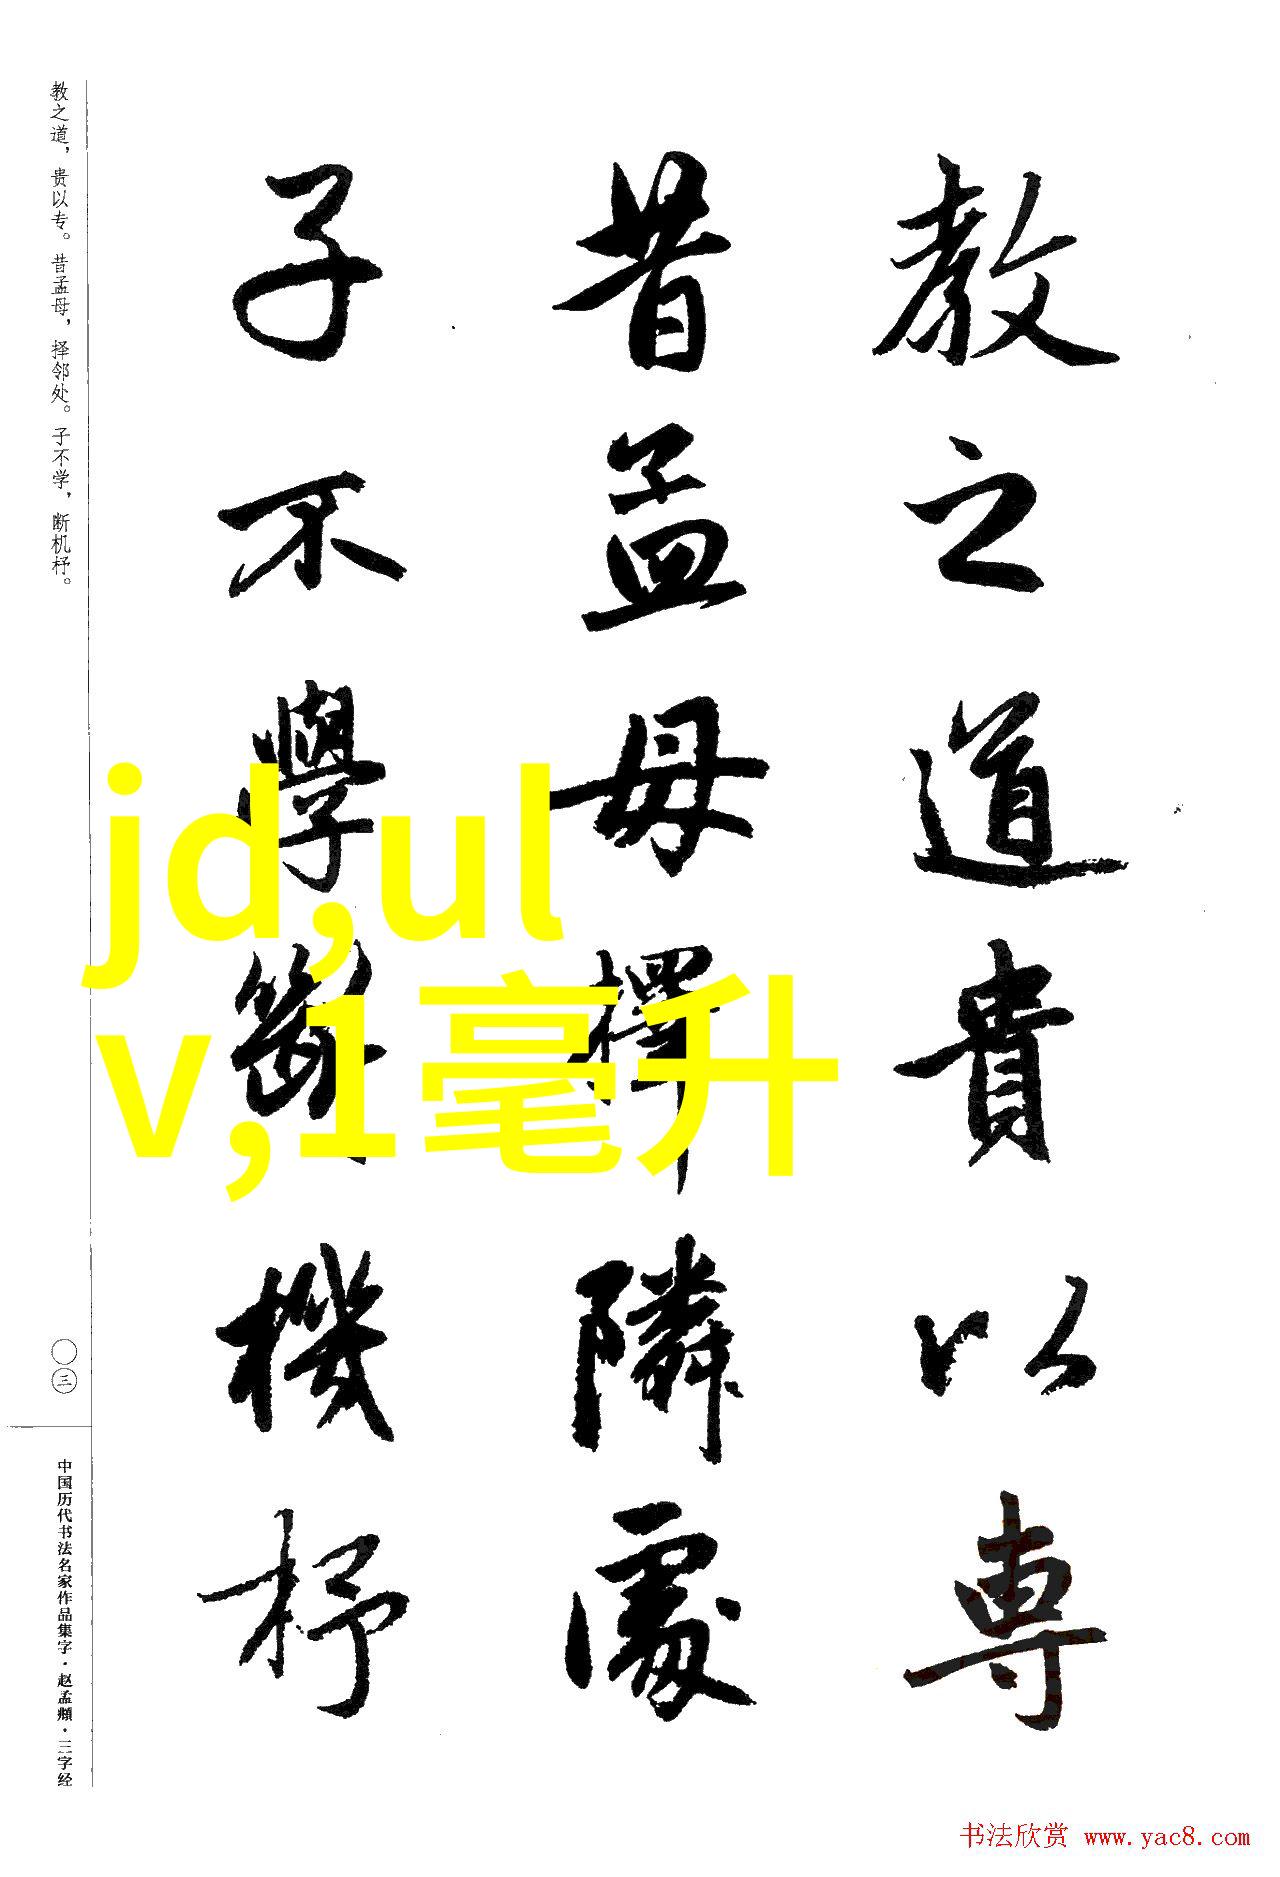 教之道貴以専
昔孟母擇隣處
子不學斷機杼
教之道，贵以专。昔孟母，择邻处。子不学，断机杼。
〇三
中国历代书法名家作品集字·赵孟頫·三字经
jd,ul
v,1毫升
书法欣赏 www.yac8.com